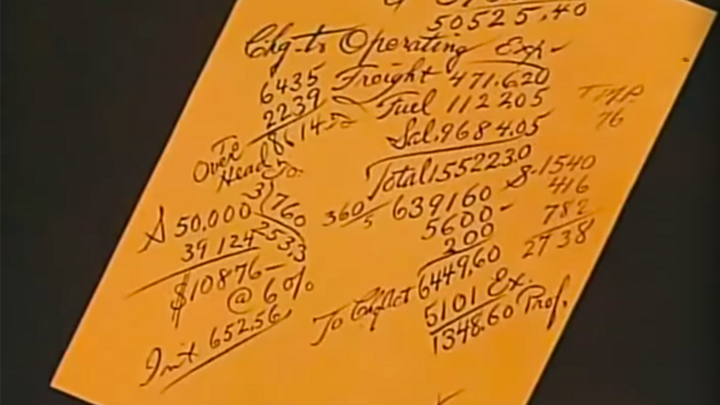 50525.40
Chg. to Operating Exp-
6435
2239
8614
To
Over
Head
Freight 471.620
Fuel 112205
Sal. 9684.05
Total 155223.0
TMP.
76
3)760
253.3
$ 50.000
39 124
$10876-
@ 6%
Int. 652.56
360/5
639160
5600-
200
6449.60
5101 Ex.
1348.60 Prof.
$.1540
416
782
2738
To